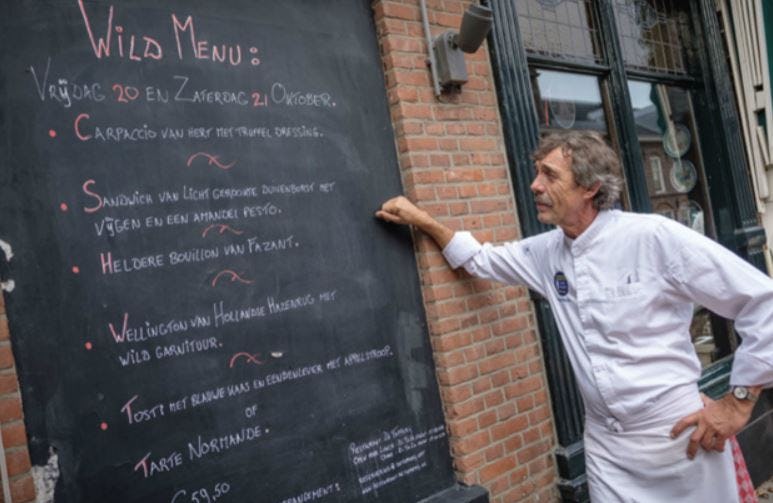 Wild Menu:
Vrijdag 20 en Zaterdag 21 Oktober.
• Carpaccio van hert met truffel dressing.
• Sandwich van licht gerookte duivenborst met
vijgen en een amandel pesto.
• Heldere bouillon van Fazant.
• Wellington van Hollandse Hazenrug met
wild garnituur.
• Tosti met blauwe kaas en eendenlever met appelstroop.
of
Tarte Normande.
€59,50